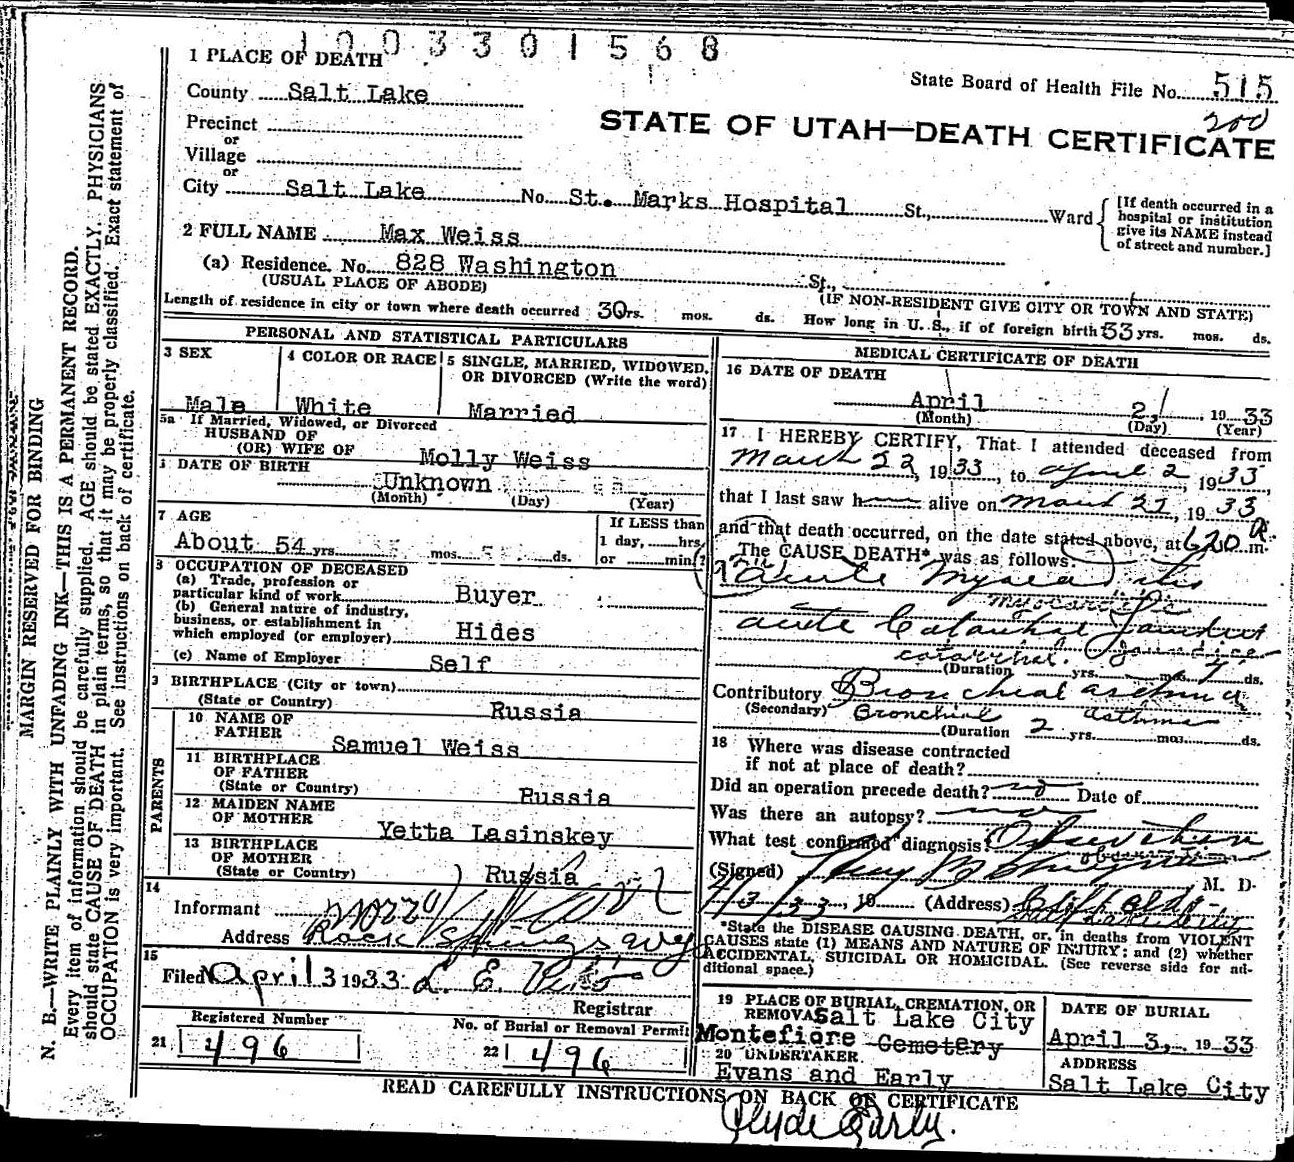 1003301568
1 PLACE OF DEATH
State Board of Health File No. 515
County Salt Lake
200
Precinct
STATE OF UTAH—DEATH CERTIFICATE
or
Village
or
City Salt Lake No. St. Marks Hospital St., Ward
[If death occurred in a
hospital or institution
give its NAME instead
of street and number.]
2 FULL NAME Max Weiss
(a) Residence. No. 828 Washington St.,
(USUAL PLACE OF ABODE)
(IF NON-RESIDENT GIVE CITY OR TOWN AND STATE)
Length of residence in city or town where death occurred 30 rs. mos. ds. How long in U. S., if of foreign birth 33 yrs. mos. ds.
PERSONAL AND STATISTICAL PARTICULARS
3 SEX
4 COLOR OR RACE
5 SINGLE, MARRIED, WIDOWED,
OR DIVORCED (Write the word)
Male White Married
5a If Married, Widowed, or Divorced
HUSBAND OF
(OR) WIFE OF Molly Weiss
DATE OF BIRTH
Unknown
(Month) (Day) (Year)
7 AGE
If LESS than
1 day, hrs.
or min.?
About 54 yrs. mos. ds.
8 OCCUPATION OF DECEASED
(a) Trade, profession or
particular kind of work Buyer
(b) General nature of industry,
business, or establishment in
which employed (or employer) Hides
(c) Name of Employer Self
9 BIRTHPLACE (City or town)
(State or Country) Russia
PARENTS
10 NAME OF
FATHER Samuel Weiss
11 BIRTHPLACE
OF FATHER
(State or Country) Russia
12 MAIDEN NAME
OF MOTHER Yetta Lasinskey
13 BIRTHPLACE
OF MOTHER
(State or Country) Russia
14
Informant
Address Rock Springs Wyo
15
Filed April 3 1933 L. E.
Registrar
Registered Number
21 496
No. of Burial or Removal Permit
22 496
MEDICAL CERTIFICATE OF DEATH
16 DATE OF DEATH
April 2, 1933
(Month) (Day) (Year)
17 I HEREBY CERTIFY, That I attended deceased from
March 22, 1933, to April 2, 1933,
that I last saw h alive on March 22, 1933
and that death occurred, on the date stated above, at 620 A m.
The CAUSE DEATH* was as follows:
Acute Myocarditis
myocarditis
acute Catarrhal Jaundice
catarrhal. jaundice
(Duration yrs. mos. 7 ds.
Contributory Bronchial asthma
(Secondary) Bronchial asthma
(Duration 2 yrs. mos. ds.
18 Where was disease contracted
if not at place of death?
Did an operation precede death? no Date of
Was there an autopsy? no
What test confirmed diagnosis? Observation
observation
(Signed) M. D.
4/3/33, 19 (Address) Cliff Bldg
*State the DISEASE CAUSING DEATH, or, in deaths from VIOLENT
CAUSES state (1) MEANS AND NATURE OF INJURY; and (2) whether
ACCIDENTAL, SUICIDAL OR HOMICIDAL. (See reverse side for ad-
ditional space.)
19 PLACE OF BURIAL, CREMATION, OR
REMOVAL Salt Lake City
Montefiore Cemetery
DATE OF BURIAL
April 3, 1933
20 UNDERTAKER
Evans and Early
ADDRESS
Salt Lake City
READ CAREFULLY INSTRUCTIONS ON BACK OF CERTIFICATE
Clyde Early.
MARGIN RESERVED FOR BINDING
N. B.—WRITE PLAINLY WITH UNFADING INK—THIS IS A PERMANENT RECORD.
Every item of information should be carefully supplied. AGE should be stated EXACTLY. PHYSICIANS
should state CAUSE OF DEATH in plain terms, so that it may be properly classified. Exact statement of
OCCUPATION is very important. See instructions on back of certificate.